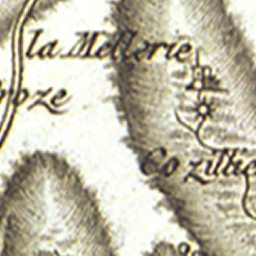 la Mellerie
oze
Co zillie